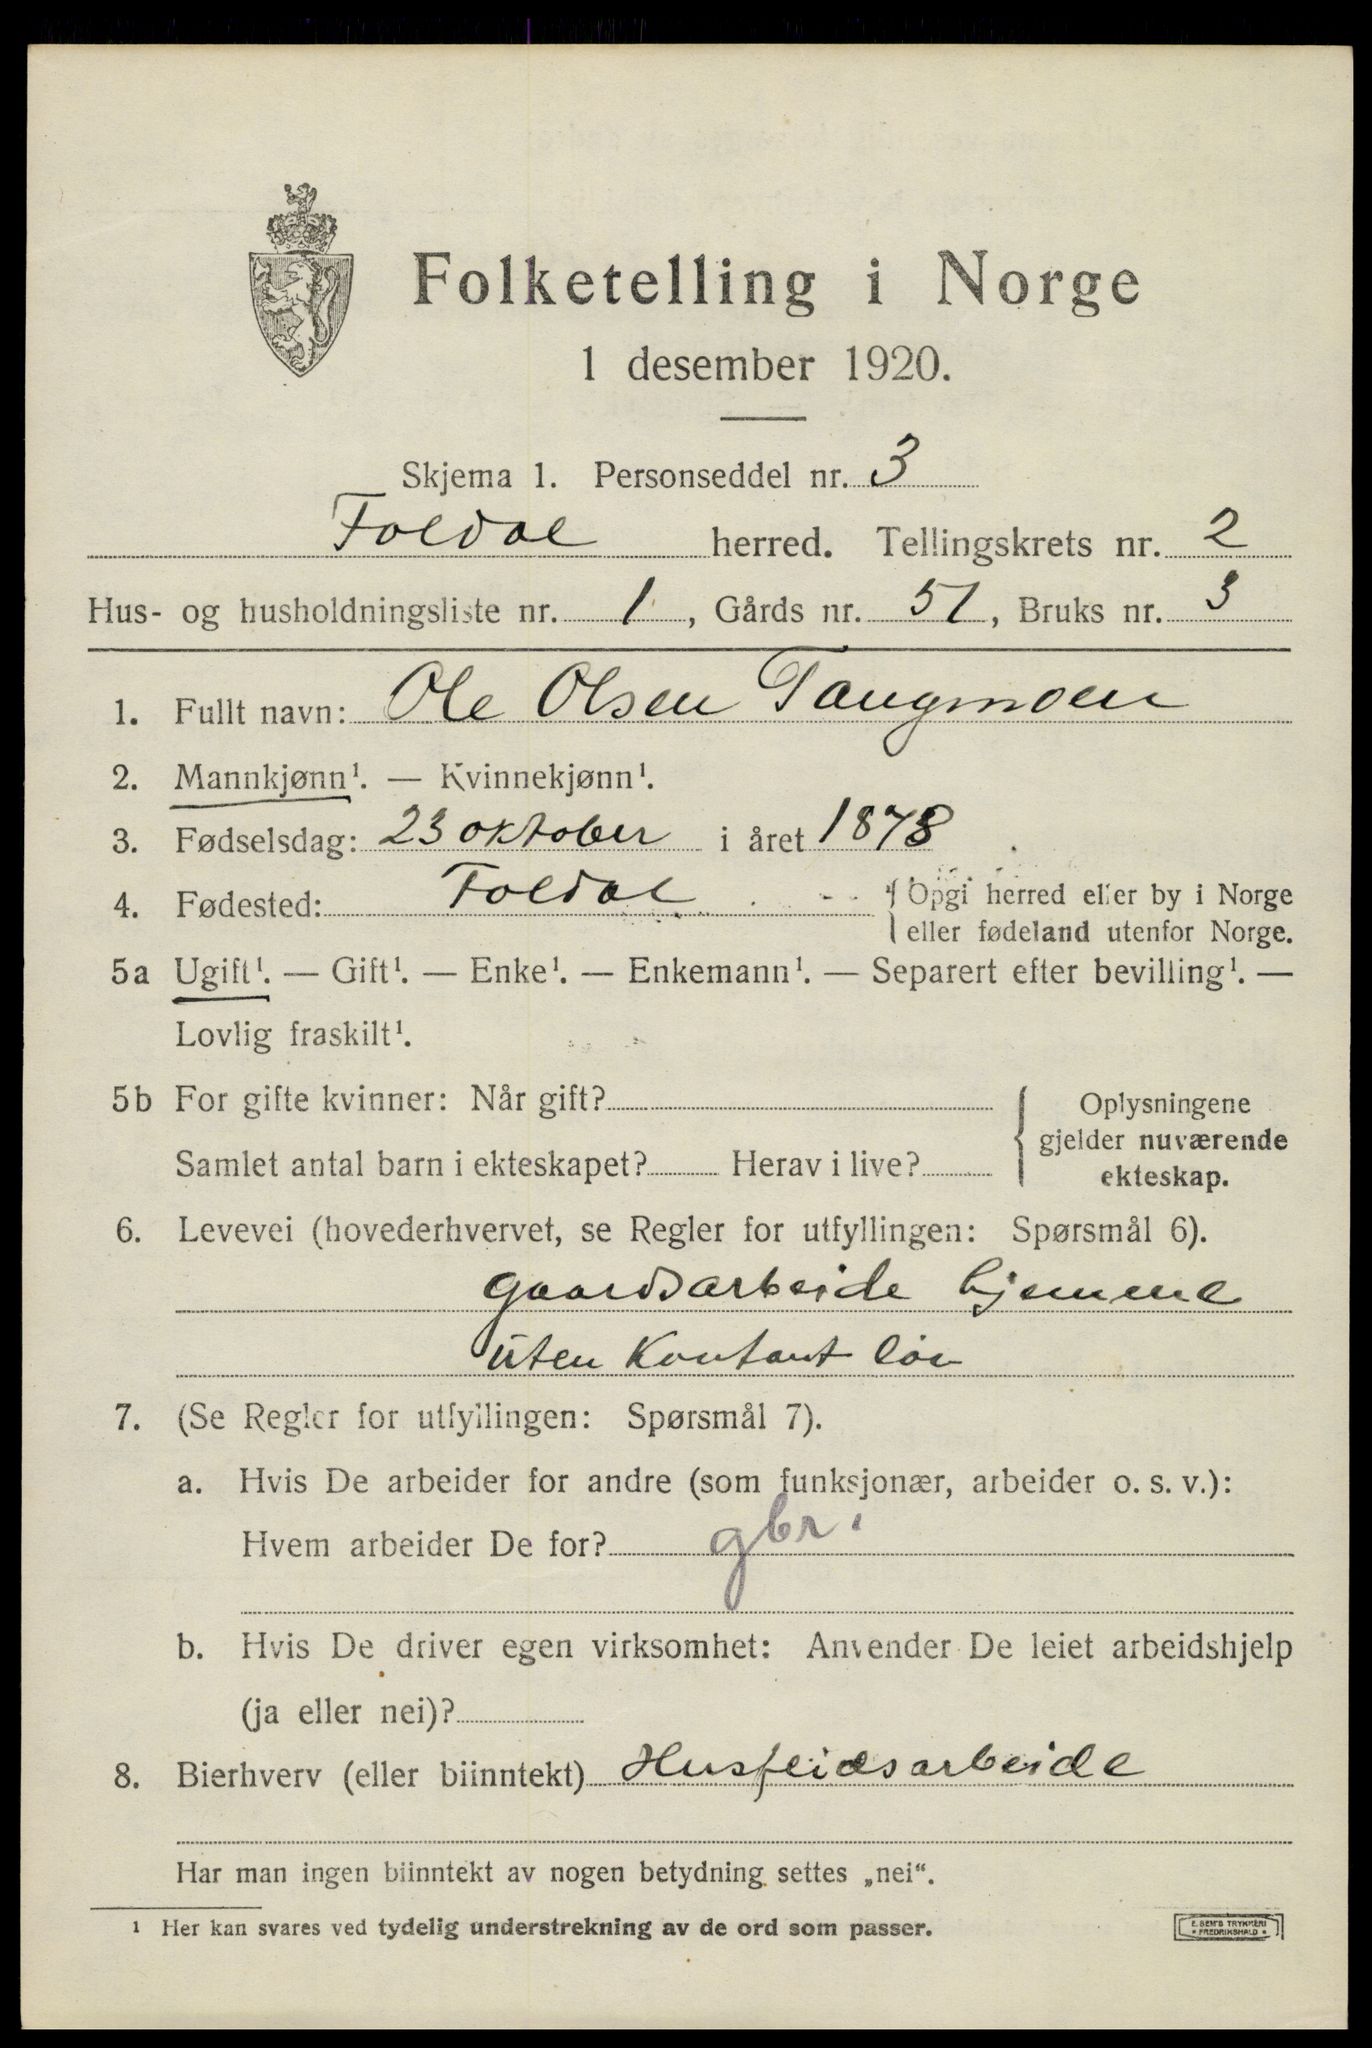 Folketelling i Norge
1 desember 1920.
Skjema 1. Personseddel nr. 3
Foldal herred. Tellingskrets nr. 2
Hus- og husholdningsliste nr. 1, Gårds nr. 51, Bruks nr. 3
1. Fullt navn: Ole Olsen Taugmoen
2. Mannkjønn¹. — Kvinnekjønn¹.
3. Fødselsdag: 23 oktober i året 1878
4. Fødested: Foldal { Opgi herred eller by i Norge
eller fødeland utenfor Norge.
5a Ugift¹. — Gift¹. — Enke¹. — Enkemann¹. — Separert efter bevilling¹. —
Lovlig fraskilt¹.
5b For gifte kvinner: Når gift?
Samlet antal barn i ekteskapet? Herav i live?
Oplysningene
gjelder nuværende
ekteskap.
6. Levevei (hovederhvervet, se Regler for utfyllingen: Spørsmål 6).
gaardsarbeide hjemme
uten Kontant løn
7. (Se Regler for utfyllingen: Spørsmål 7).
a. Hvis De arbeider for andre (som funksjonær, arbeider o. s. v.):
Hvem arbeider De for? gbr.
b. Hvis De driver egen virksomhet: Anvender De leiet arbeidshjelp
(ja eller nei)?
8. Bierhverv (eller biinntekt) Husflidsarbeide
Har man ingen biinntekt av nogen betydning settes „nei“.
¹ Her kan svares ved tydelig understrekning av de ord som passer.
E. SEM'S TRYKKERI
• FREDRIKSHALD •